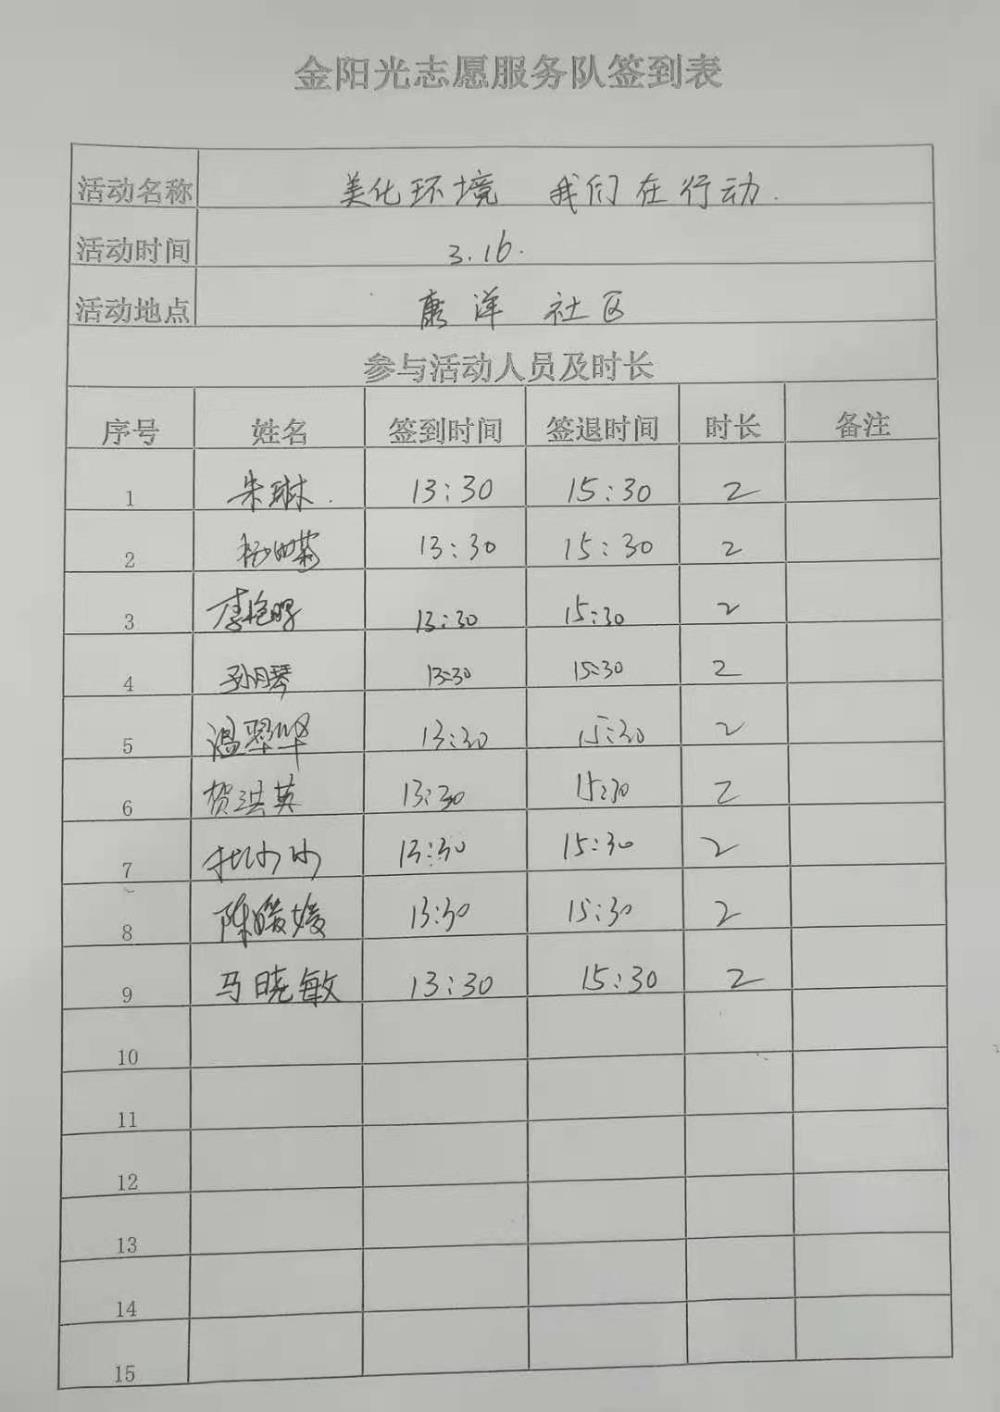 金阳光志愿服务队签到表
活动名称 美化环境 我们在行动.
活动时间 3.16.
活动地点 唐洋 社区
参与活动人员及时长
序号 姓名 签到时间 签退时间 时长 备注
1 朱琳. 13:30 15:30 2
2 13:30 15:30 2
3 李艳明 13:30 15:30 2
4 孙月琴 13:30 15:30 2
5 温翠华 13:30 15:30 2
6 贺洪英 13:30 15:30 2
7 13:30 15:30 2
8 陈媛媛 13:30 15:30 2
9 马晓敏 13:30 15:30 2
10
11
12
13
14
15